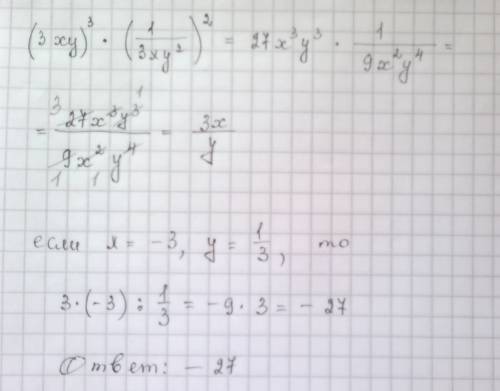 (3xy)³ · (1/3xy²)² = 27x³y³ · 1/9x²y⁴ =
= 27x³y³/9x²y⁴ = 3x/y
если x = -3, y = 1/3, то
3·(-3) : 1/3 = -9·3 = -27
Ответ: -27